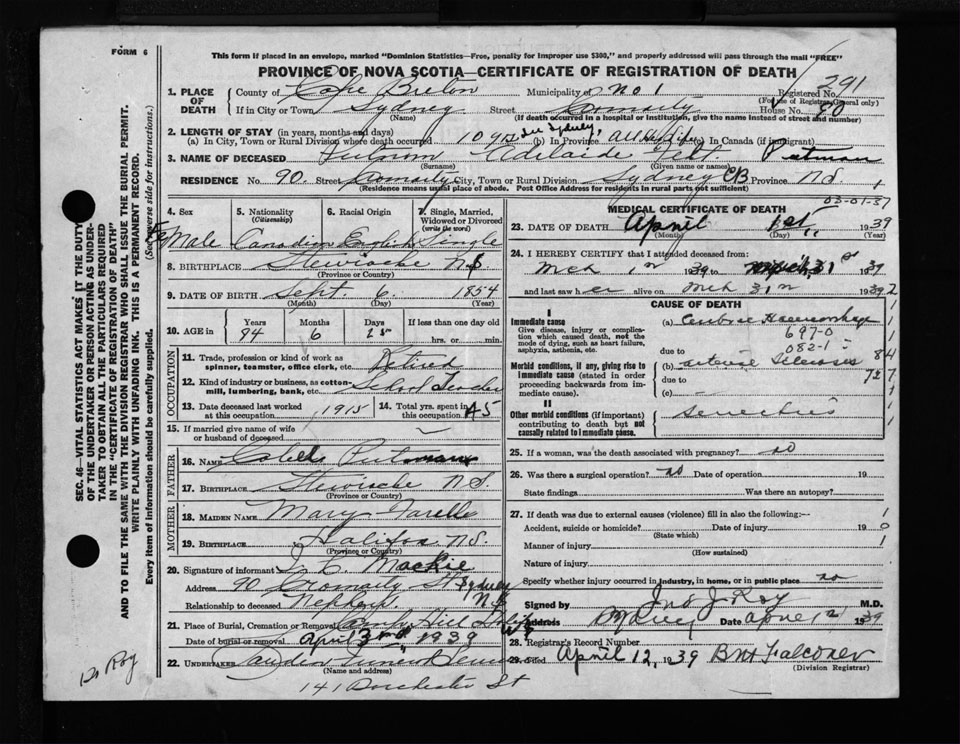 FORM 6
This form if placed in an envelope, marked "Dominion Statistics—Free, penalty for improper use $300," and properly addressed will pass through the mail "FREE"
PROVINCE OF NOVA SCOTIA—CERTIFICATE OF REGISTRATION OF DEATH
291
1. PLACE OF DEATH County of Cape Breton Municipality of No 1 Registered No.
(For use of Registrar General only)
If in City or Town Sydney Street House No. 90
(Name) (If death occurred in a hospital or institution, give the name instead of street and number)
2. LENGTH OF STAY (in years, months and days)
(a) In City, Town or Rural Division where death occurred (b) In Province all life (c) In Canada (if immigrant)
3. NAME OF DECEASED Putnam Adelaide Putman
(Surname) (Given name or names)
RESIDENCE No. 90. Street City, Town or Rural Division Sydney CB Province N.S. 1
(Residence means usual place of abode. Post Office Address for residents in rural parts not sufficient)
03-01-37
4. Sex 5. Nationality (Citizenship) 6. Racial Origin 7. Single, Married, Widowed or Divorced (write the word)
FeMale Canadian English Single
8. BIRTHPLACE Stewiacke N.S
(Province or Country)
9. DATE OF BIRTH Sept. 6. 1854
(Month) (Day) (Year)
10. AGE in Years Months Days If less than one day
84 6 25 hrs. or min.
OCCUPATION
11. Trade, profession or kind of work as spinner, teamster, office clerk, etc. Retired
12. Kind of industry or business, as cotton-mill, lumbering, bank, etc. School Teacher
13. Date deceased last worked at this occupation 1915 14. Total yrs. spent in this occupation 45
15. If married give name of wife or husband of deceased
FATHER
16. NAME Caleb Putman
17. BIRTHPLACE Stewiacke N.S.
(Province or Country)
MOTHER
18. MAIDEN NAME Mary
19. BIRTHPLACE Halifax N.S.
(Province or Country)
20. Signature of informant Mackie
Address 90 St Sydney N.S
Relationship to deceased Nephew.
21. Place of Burial, Cremation or Removal Camp Hill
Date of burial or removal April 3rd 1939
22. UNDERTAKER
(Name and address)
141 Dorchester St
MEDICAL CERTIFICATE OF DEATH
23. DATE OF DEATH April 1st 1939
(Month) (Day) (Year)
24. I HEREBY CERTIFY that I attended deceased from:
Mch 1st 1939 to Mch 31st 1939
and last saw her alive on Mch 31st 1939
CAUSE OF DEATH
I
Immediate cause
Give disease, injury or complication which caused death, not the mode of dying, such as heart failure, asphyxia, asthenia, etc.
(a) Haemorrhage
697-0
082-1
due to
Morbid conditions, if any, giving rise to immediate cause (stated in order proceeding backwards from immediate cause).
(b) 84
due to 727
(c)
II
Other morbid conditions (if important) contributing to death but not causally related to immediate cause.
25. If a woman, was the death associated with pregnancy? no
26. Was there a surgical operation? no Date of operation 19
State findings Was there an autopsy?
27. If death was due to external causes (violence) fill in also the following:— 1
Accident, suicide or homicide? Date of injury 19 0
(State which) 1
Manner of injury
(How sustained)
Nature of injury
Specify whether injury occurred in industry, in home, or in public place no
Signed by Jno J Roy M.D.
Address Sydney Date April 1939
28. Registrar's Record Number
29. Filed April 12, 1939 Falconer
(Division Registrar)
SEC. 46—VITAL STATISTICS ACT MAKES IT THE DUTY OF THE UNDERTAKER OR PERSON ACTING AS UNDERTAKER TO OBTAIN ALL THE PARTICULARS REQUIRED IN THE "CERTIFICATE OF REGISTRATION OF DEATH" AND TO FILE THE SAME WITH THE DIVISION REGISTRAR WHO SHALL ISSUE THE BURIAL PERMIT.
WRITE PLAINLY WITH UNFADING INK. THIS IS A PERMANENT RECORD.
Every item of information should be carefully supplied. (See reverse side for instructions.)
Dr Roy